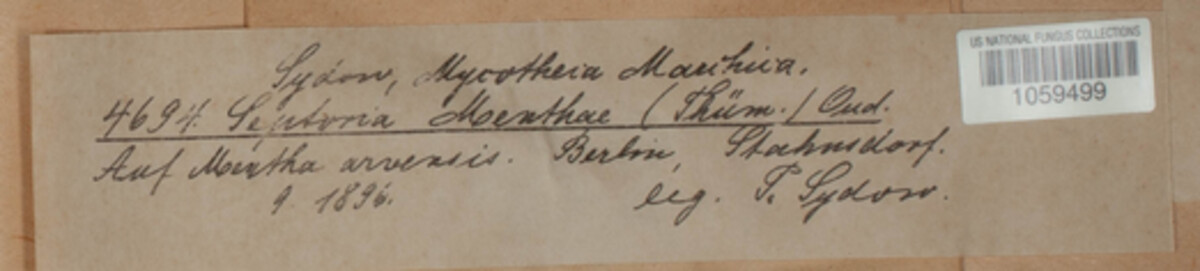 Sydow, Mycotheca Marchica.
4694. Septoria Menthae (Thüm.) Oud.
Auf Mentha arvensis. Berlin, Stahnsdorf.
9. 1896. leg. P. Sydow.
US NATIONAL FUNGUS COLLECTIONS
1059499